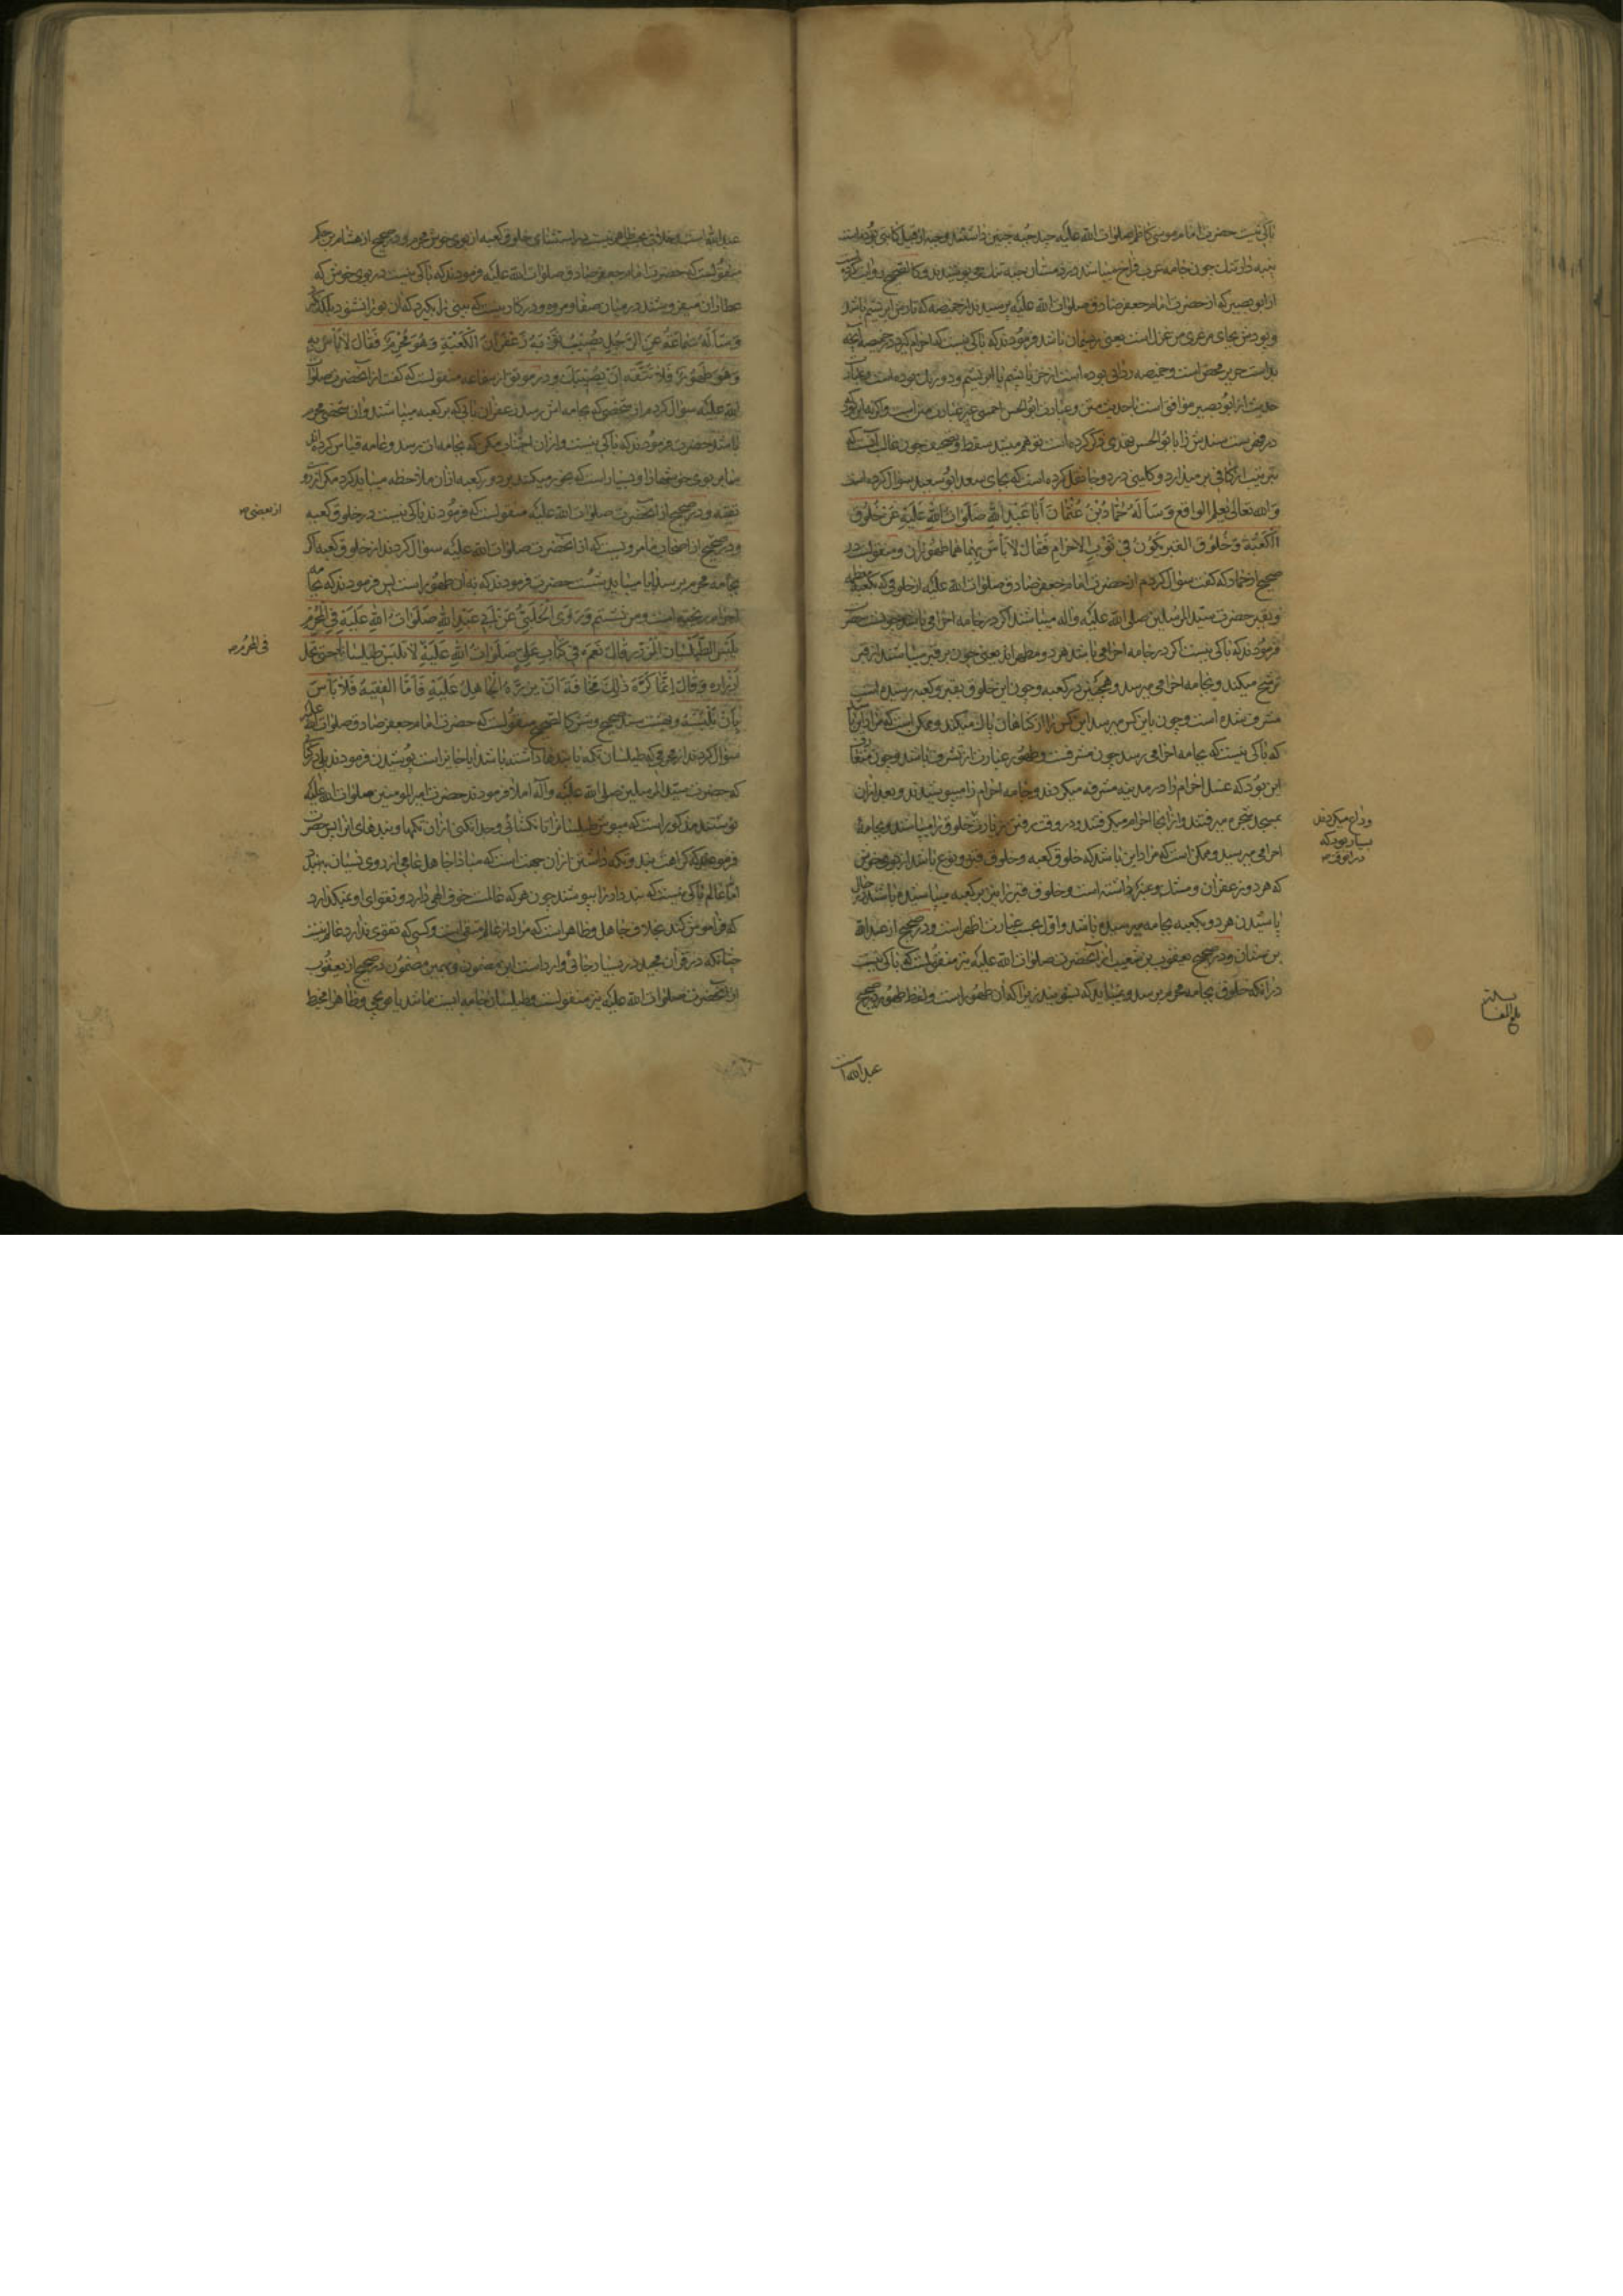 باکی نیست حضرت امام موسی کاظم صلوات الله علیه چند جبه چنین داشتند و جبه از قبیل کاتبی بوده است
پنبه دار تنک چون جامه عرب فراخ میباشد در زمستان جبه تنک می پوشیدند و کالصحیح
از ابو بصیر که از حضرت امام جعفر صادق صلوات الله علیه پرسیدند از خمیصه که تارش ابریشم باشد
و پودش بجای مرعزی من غزل است یعنی ریسمان باشد فرمودند که باکی نیست که احرام گیرد در خمیصه آنچه
بد است حریر محض است و خمیصه ردائی بوده است از خز یا پشم یا ابریشم و دو رنگ بوده است و عبارت
حدیث از ابو بصیر موافق است با حدیث متن و عبارت ابو الحسن احمسی غیر عبارت متن است
در فهرست سندش را بابو الحسن نهدی ذکر کرده است
نیز نیست از کافی بر میدارد و کلینی در دو جا نقل کرده است که بجای سعد ابو سعید سوال کرده است
و الله تعالی یعلم الواقع وَسَأَلَهُ حَمَّادُ بْنُ عُثْمَانَ أَبَا عَبْدِ اللهِ صَلَوَاتُ اللهِ عَلَيْهِ عَنْ خَلُوقِ
الْكَعْبَةِ وَخَلُوقِ الْقَبْرِ يَكُونُ فِي ثَوْبِ الْإِحْرَامِ فَقَالَ لَا بَأْسَ بِهِمَا هُمَا طَهُورَانِ و منقولست در
صحیح از حماد که گفت سوال کردم از حضرت امام جعفر صادق صلوات الله علیه از خلوقی که بکعبه
و بقبر حضرت سید المرسلین صلی الله علیه و اله میباشد اگر در جامه احرامی باشد چونست حضرت
فرمودند که باکی نیست اگر در جامه احرامی باشد هر دو مطهراند یعنی چون بر قبر میباشند از قبر
ترشح میکند و بجامه احرامی میرسد و همچنین در کعبه و چون این خلوق بقبر و کعبه رسیده است
مشرف شده است و چون باین کس میرسد این کس را از گناهان پاک میکند و ممکن است که مراد این باشد
که باکی نیست که بجامه احرامی رسد چون مشرفست و طهور عبارت از تشرف باشد و چون متعارف
این بود که غسل احرام را در مدینه مشرفه میکردند و جامه احرام را میپوشیدند و بعد از آن
بمسجد شجره میرفتند و از آنجا احرام میگرفتند و در وقت رفتن بزیارت خلوق را میپاشند و بجامه
احرامی میرسید و ممکن است که مراد این باشد که خلوق کعبه و خلوق قبر دو نوع باشد از بوی خوش
که هر دو زعفران و مشک و عنبر داشته است و خلوق قبر را نیز بر کعبه میپاشیده باشند در حال
پاشیدن هر دو بکعبه بجامه میرسیده باشد و اول بحسب عبارت اظهر است و در صحیح از عبد الله
بن سنان و در صحیح یعقوب بن شعیب از آنحضرت صلوات الله علیه نیز منقولست که باکی نیست
در آنکه خلوق بجامه محرم برسد و نمیباید که بشویند زیرا که آن طهور است و لفظ طهور در صحیح
وداع میکردند
بسیار بود که
در انوقت
عبد الله است
عبد الله است و خلافی بحسب ظاهر نیست در استثنای خلوق کعبه از بوی خوش محرم و در صحیح از هشام بن حکم
منقولست که حضرت امام جعفر صادق صلوات الله علیه فرمودند که باکی نیست در بوی خوش که
عطاران میفروشند در میان صفا و مروه و در کار نیست که بینی را بگیرد که آن بو را نشنود
وَسَأَلَهُ سَمَاعَةُ عَنِ الرَّجُلِ يُصِيبُ ثَوْبَهُ زَعْفَرَانُ الْكَعْبَةِ وَهُوَ مُحْرِمٌ فَقَالَ لَا بَأْسَ بِهِ
وَهُوَ طَهُورٌ فَلَا تَتَّقِهِ أَنْ يُصِيبَكَ و در موثق از سماعه منقولست که گفت از آنحضرت صلوات
الله علیه سوال کردم از شخصی که بجامه اش رسد زعفرانی که بر کعبه میپاشند و ان شخص محرم
باشد حضرت فرمودند که باکی نیست و از ان اجتناب مکن که بجامه ات برسد و عامه قیاس کرده‌اند
سایر بوی خوشها را و بسیار است که بخور میکنند در دور کعبه از آن ملاحظه میباید کرد مگر از رو
تقیه و در صحیح از آنحضرت صلوات الله علیه منقولست که فرمودند باکی نیست در خلوق کعبه
و در صحیح از اصحاب ما مرویست که از آنحضرت صلوات الله علیه سوال کردند از خلوق کعبه اگر
بجامه محرم برسد آیا میباید شست حضرت فرمودند که نه آن طهور است پس فرمودند که
وَرَوَى الْحَلَبِيُّ عَنْ أَبِي عَبْدِ اللهِ صَلَوَاتُ اللهِ عَلَيْهِ فِي الْمُحْرِمِ
يَلْبَسُ الطَّيْلَسَانَ الْمُزَرَّرَ قَالَ نَعَمْ فِي كِتَابِ عَلِيٍّ صَلَوَاتُ اللهِ عَلَيْهِ لَا تَلْبَسْ طَيْلَسَانًا حَتَّى تَحُلَّ
أَزْرَارَهُ وَقَالَ إِنَّمَا كُرِهَ ذَلِكَ مَخَافَةَ أَنْ يَزُرَّهُ الْجَاهِلُ عَلَيْهِ فَأَمَّا الْفَقِيهُ فَلَا بَأْسَ
بِأَنْ يَلْبَسَهُ و بیست سند صحیح و شش کالصحیح منقولست که حضرت امام جعفر صادق صلوات الله علیه
سوال کردند از محرمی که طیلسان تکمه یا بندها داشته باشد آیا جایز است پوشیدن فرمودند بلی در کتابی
که حضرت سید المرسلین صلی الله علیه و آله املا فرمودند حضرت امیر المومنین صلوات الله علیه
نوشتند مذکور است که مپوش طیلسانرا تا نگشائی و جدا نکنی از آن تکمها و بندهای انرا پس حضرت
فرمودند که کراهت بند و تکمه داشتن از آن جهت است که مبادا جاهل عامی از روی نسیان ببندد
اما عالم باکی نیست که بند دار را بپوشد چون هر که عالمست خوف الهی دارد و تقوای او نمیگذارد
که فراموش کند بخلاف جاهل و ظاهر است که مراد از عالم متقی است و کسی که تقوی ندارد عالم نیست
چنانکه در قرآن مجید در بسیار جائی وارد است این مضمون و بهمین مضمون در صحیح از یعقوب
از آنحضرت صلوات الله علیه نیز منقولست و طیلسان جامه ایست
از بعضی
فی المحرم